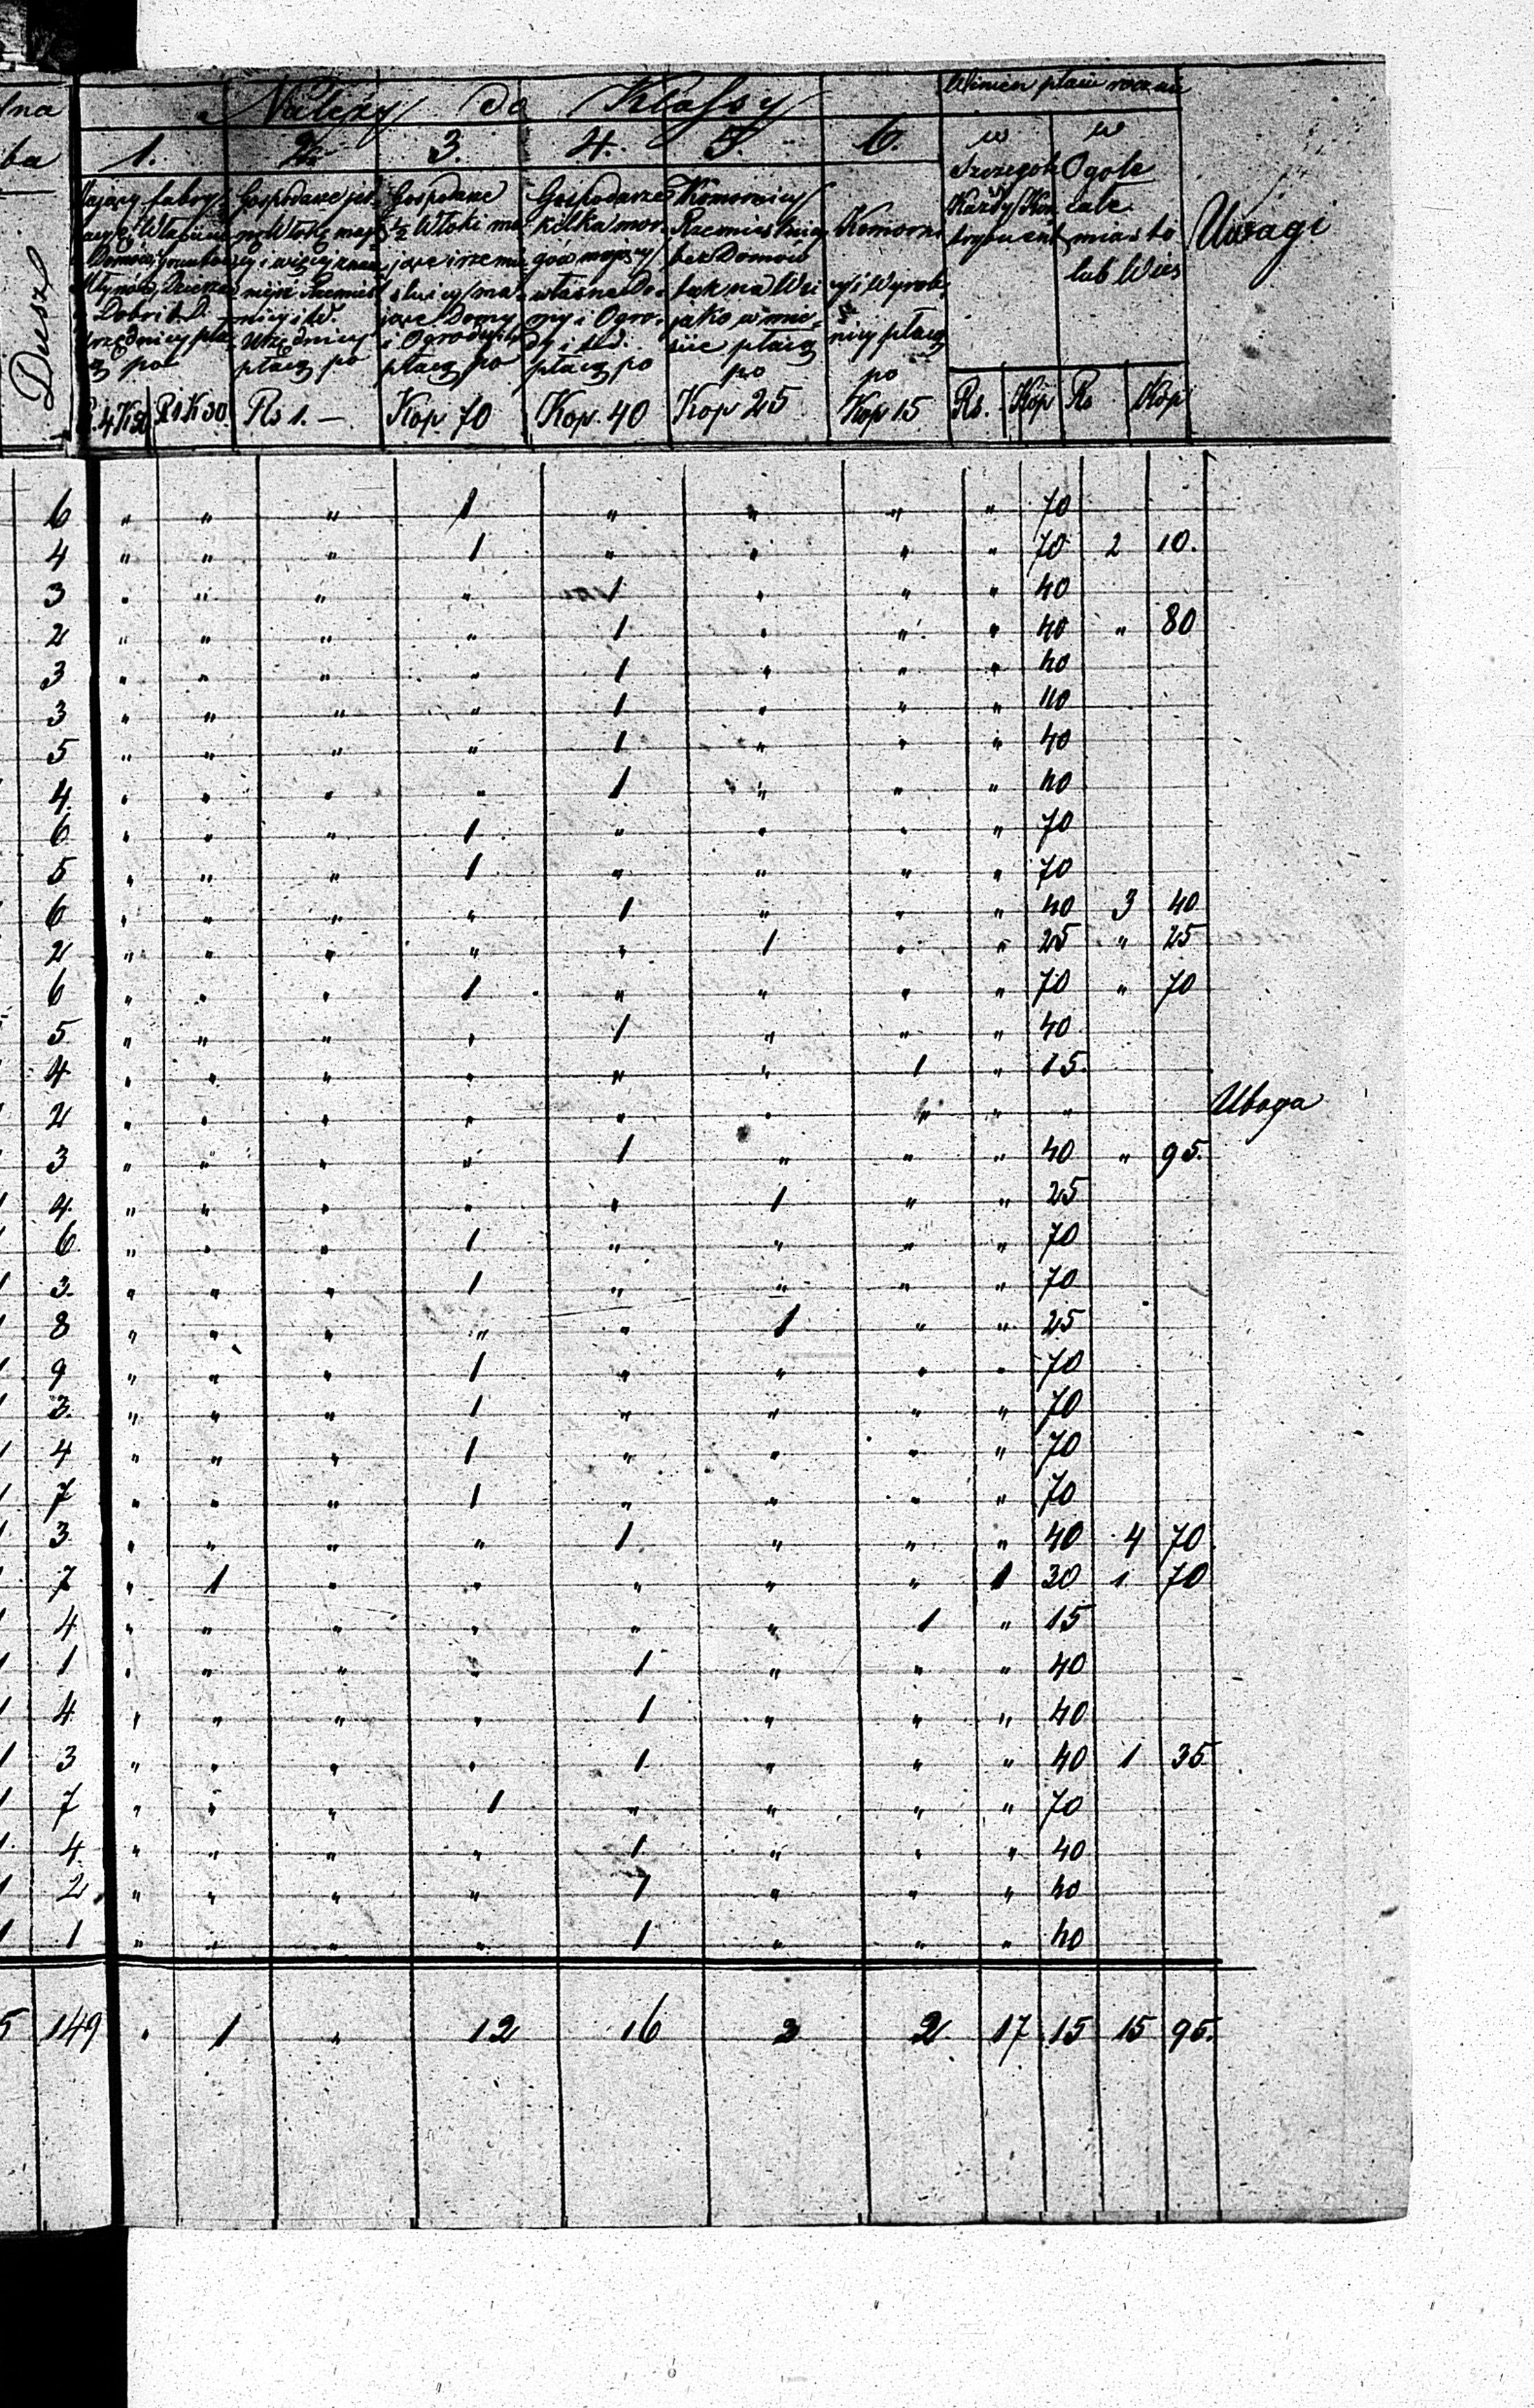 Należy do Klassy
Winien płacić rocznie
lna
ba
1. 2. 3. 4. 5. 6.
w w
Szczegole Ogole
Każdy Kon całe
trybuent miasto
lub Wieś
Uwagi
Dusz
Gospodarze
½ Włoki ma
jące i rzemie
ślnicy ma
jące Domy
i Ogrody itd
płacą po
Gospodarze
kilka mor
gów mający
własne Do
my i Ogro
dy i t.d.
płacą po
Komornicy
Rzemieślnicy
bez Domów
tak na Wsi
jako w mie
ście płacą
po
Komorni
cy i Wyrob
nicy płacą
po
R. 4 K 50 R 1 K 30. Rs 1. — Kop. 70 Kop. 40 Kop 25 Kop 15. Rs. Kop Rs Kop
6 " " " 1 " " " " 70
4 " " " 1 " " " " 70 2 10.
3 " " " " 1 " " " 40
2 " " " " 1 " " " 40 " 80
3 " " " " 1 " " " 40
3 " " " " 1 " " " 40
5 " " " " 1 " " " 40
4. " " " " 1 " " " 40
6 " " " 1 " " " " 70
5 " " " 1 " " " " 70
6 " " " " 1 " " " 40 3 40
2 " " " " " 1 " " 25 " 25
6 " " " 1 " " " " 70 " 70
5 " " " " 1 " " " 40
4 " " " " " " 1 " 15.
2 " " " " " " " " " Uboga
3 " " " " 1 " " " 40 " 95.
4. " " " " " 1 " " 25
6 " " " 1 " " " " 70
3. " " " 1 " " " " 70
8 " " " " " 1 " " 25
9 " " " 1 " " " " 70
3. " " " 1 " " " " 70
4 " " " 1 " " " " 70
7 " " " 1 " " " " 70
3 " " " " 1 " " " 40 4 70
7 " 1 " " " " " 1 30 1 70
4 " " " " " " 1 " 15
1 " " " " 1 " " " 40
4 " " " " 1 " " " 40
3 " " " " 1 " " " 40 1 35.
7 " " " 1 " " " " 70
4. " " " " 1 " " " 40
2 " " " " 1 " " " 40
1 " " " " 1 " " " 40
5 149 " 1 " 12 16 3 2 17 15 15 95.